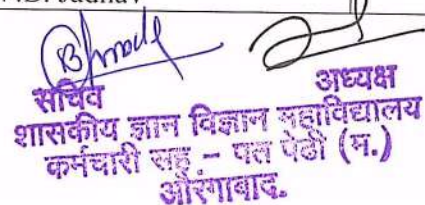 Jadhav
सचिव अध्यक्ष
शासकीय ज्ञान विज्ञान महाविद्यालय
कर्मचारी सह - पत पेढी (म.)
औरंगाबाद.